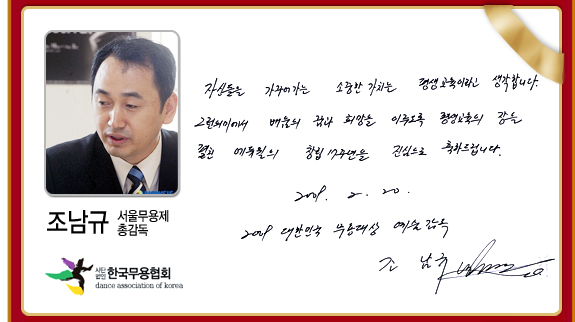 자신들을 가꾸어가는 소중한 가치는 평생교육이라고 생각합니다.
그런의미에서 배움의 꿈과 희망을 이루도록 평생교육의 장을
펼친 에듀윌의 창립 17주년을 진심으로 축하드립니다.
2009. 2. 20.
2009 대한민국 무용대상 예술감독
조 남규
조남규 서울무용제
총감독
사단
법인 한국무용협회
dance association of korea